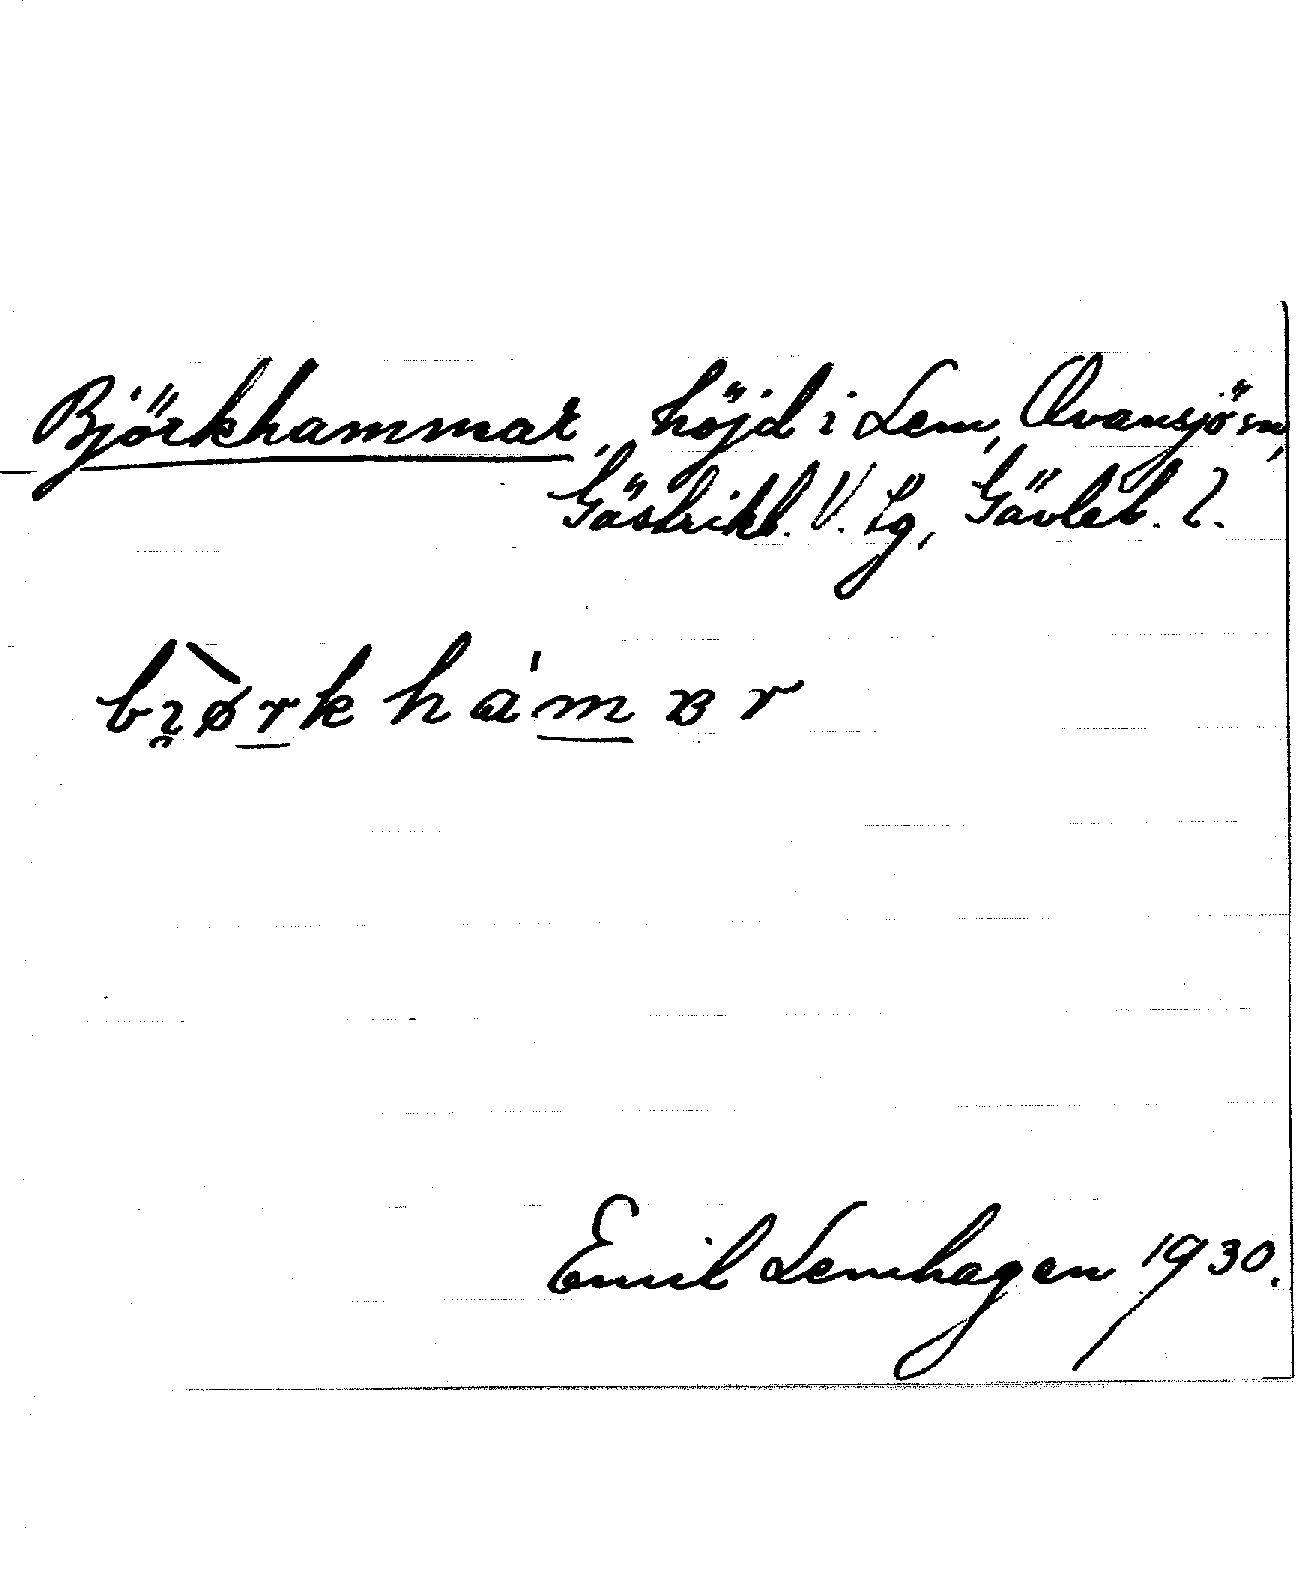 Björkhammar, höjd i Lem, Ovansjö sn,
Gästrikl. V. tg, Gävleb. l.
bɪ̯ørkhamɐr
Emil Lemhagen 1930.